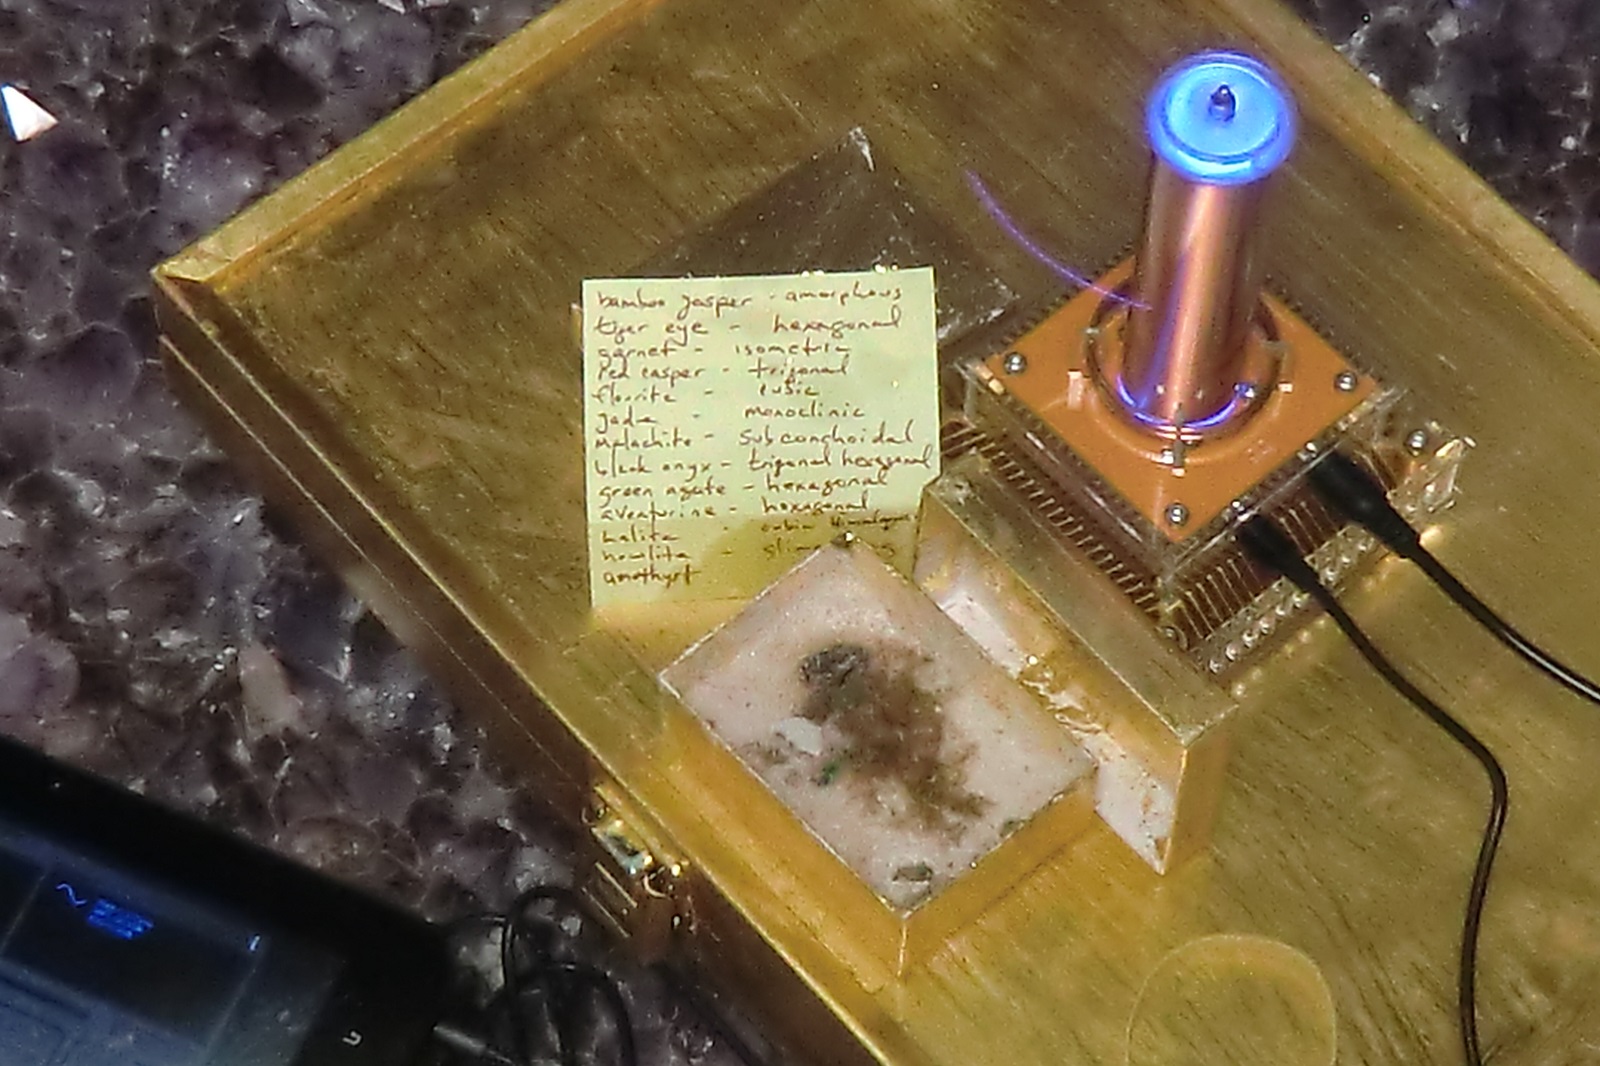 bamboo jasper - amorphous
tiger eye - hexagonal
garnet - isometric
Red casper - trigonal
florite - cubic
jade - monoclinic
malachite - subconchoidal
black onyx - trigonal hexagonal
green agate - hexagonal
aventurine - hexagonal
halite - cubic
howlite -
amethyst